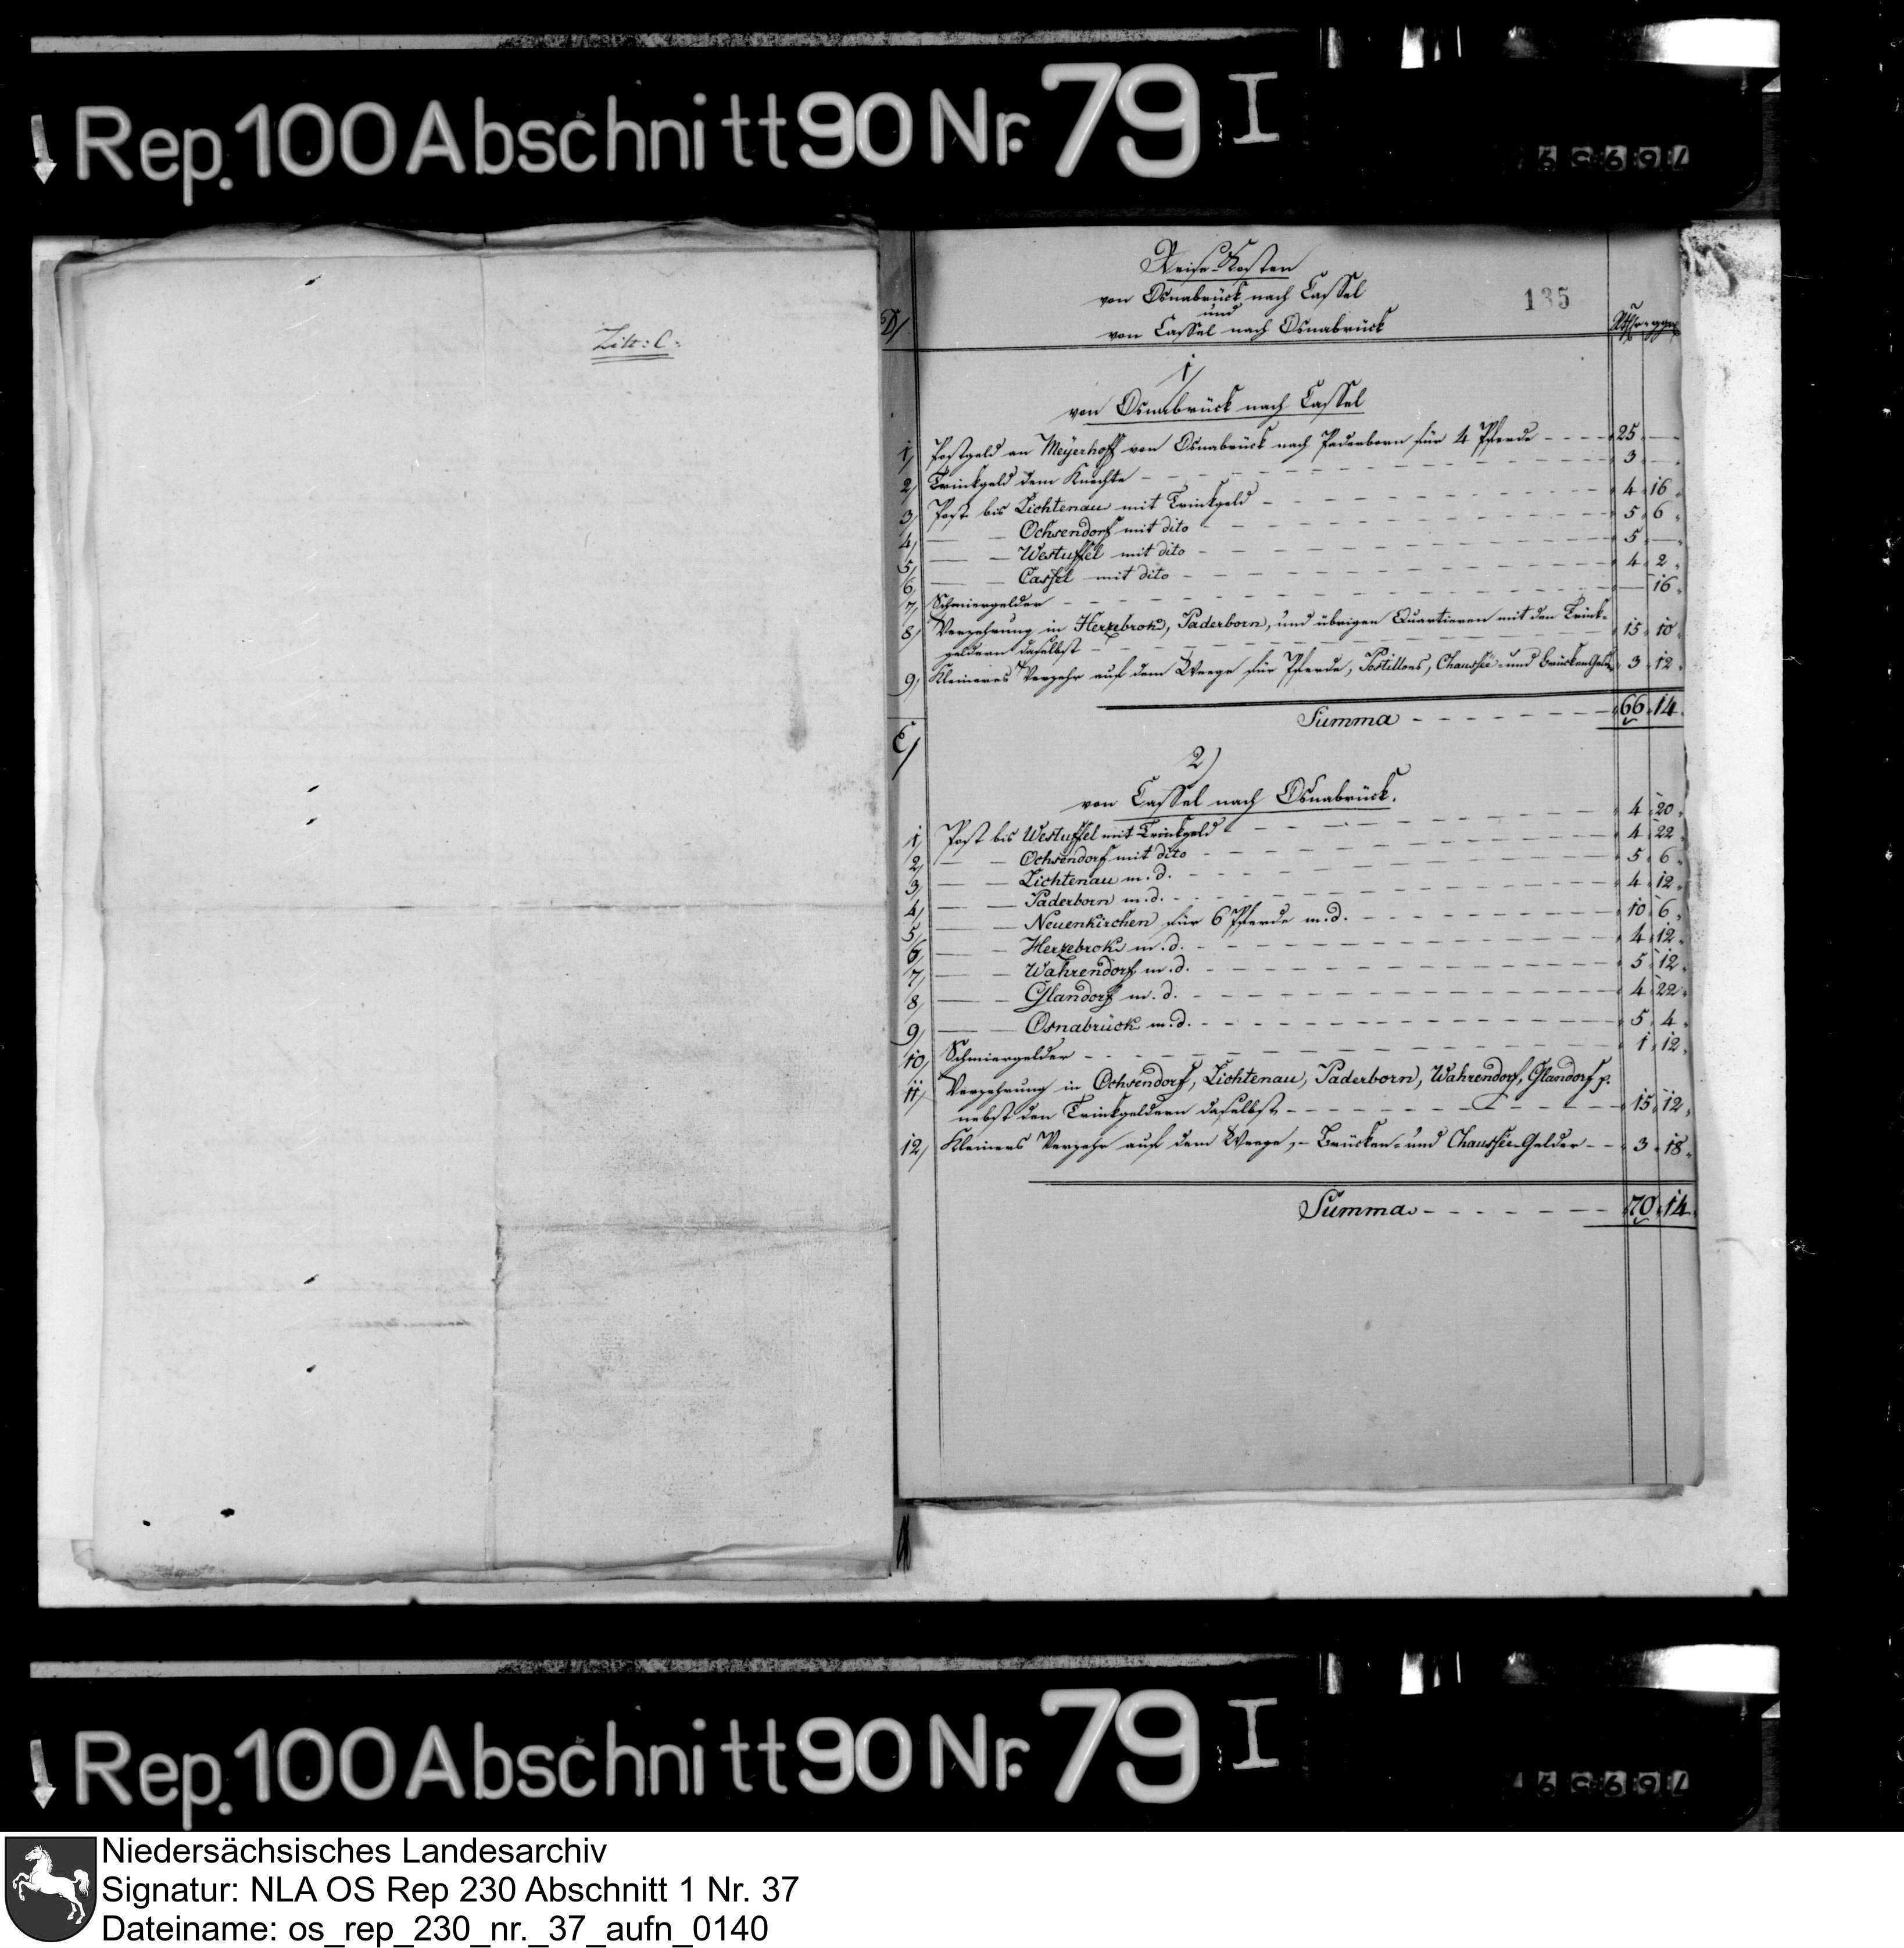 Rep. 100 Abschnitt 90 Nr. 79 I
Litt: C:
135
Reise-Kosten
von Osnabrück nach Cassel
und
von Cassel nach Osnabrück
D/
Rthlr ggr
1/
von Osnabrück nach Cassel
1, Postgeld an Meyerhoff von Osnabrück nach Paderborn für 4 Pferde - - - 25 —
2, Trinkgeld dem Knechte - - - 3 —
3, Post bis Lichtenau mit Trinkgeld - - - 4 16
4, — — Ochsendorf mit dito - - - 5 6
5, — — Westuffel mit dito - - - 5 —
6, — — Cassel mit dito - - - 4 2
7, Schmiergelder - - - — 16
8, Verzehrung in Herzebrok, Paderborn, und übrigen Quartieren mit den Trink-
geldern daselbst - - - 15 10
9, Kleineres Verzehr auf dem Weege für Pferde, Postillons, Chaussée- und Brücken Gelder 3 12
Summa - - - 66 14
E/
2)
von Cassel nach Osnabrück.
1, Post bis Westuffel mit Trinkgeld - - - 4 20
2, — — Ochsendorf mit dito - - - 4 22
3, — — Lichtenau m. d. - - - 5 6
4, — — Paderborn m. d. - - - 4 12
5, — — Neuenkirchen für 6 Pferde m. d. - - - 10 6
6, — — Herzebrok m. d. - - - 4 12
7, — — Wahrendorf m. d. - - - 5 12
8, — — Glandorf m. d. - - - 4 22
9, — — Osnabrück m. d. - - - 5 4
10, Schmiergelder - - - 1 12
11, Verzehrung in Ochsendorf, Lichtenau, Paderborn, Wahrendorf, Glandorf p.
nebst den Trinkgeldern daselbst - - - 15 12
12, Kleineres Verzehr auf dem Weege, - Brücken- und Chaussée-Gelder - - 3 18
Summa - - - 70 14
Rep. 100 Abschnitt 90 Nr. 79 I
Niedersächsisches Landesarchiv
Signatur: NLA OS Rep 230 Abschnitt 1 Nr. 37
Dateiname: os_rep_230_nr._37_aufn_0140